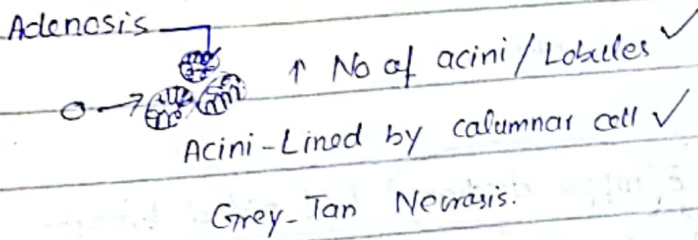 Adenosis
↑ No of acini / Lobules ✓
Acini - Lined by calumnar cell ✓
Grey - Tan Necrasis.